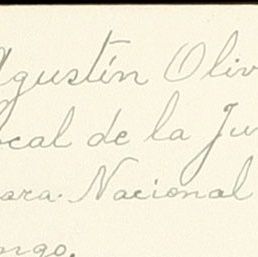 Agustín Oliv
ocal de la Ju
ara. Nacional
ongo.